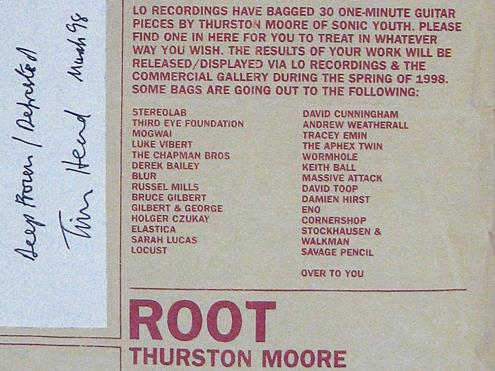 LO RECORDINGS HAVE BAGGED 30 ONE-MINUTE GUITAR
PIECES BY THURSTON MOORE OF SONIC YOUTH. PLEASE
FIND ONE IN HERE FOR YOU TO TREAT IN WHATEVER
WAY YOU WISH. THE RESULTS OF YOUR WORK WILL BE
RELEASED/DISPLAYED VIA LO RECORDINGS & THE
COMMERCIAL GALLERY DURING THE SPRING OF 1998.
SOME BAGS ARE GOING OUT TO THE FOLLOWING:
STEREOLAB
THIRD EYE FOUNDATION
MOGWAI
LUKE VIBERT
THE CHAPMAN BROS
DEREK BAILEY
BLUR
RUSSEL MILLS
BRUCE GILBERT
GILBERT & GEORGE
HOLGER CZUKAY
ELASTICA
SARAH LUCAS
LOCUST
DAVID CUNNINGHAM
ANDREW WEATHERALL
TRACEY EMIN
THE APHEX TWIN
WORMHOLE
KEITH BALL
MASSIVE ATTACK
DAVID TOOP
DAMIEN HIRST
ENO
CORNERSHOP
STOCKHAUSEN &
WALKMAN
SAVAGE PENCIL
OVER TO YOU
ROOT
THURSTON MOORE
Deep Frozen / Defrosted
Tim Head March 98